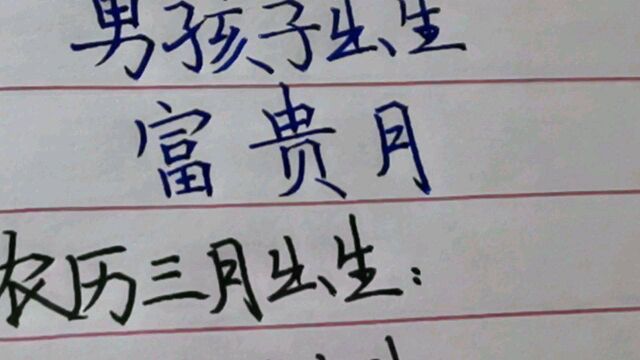 男孩子出生
富贵月
农历三月出生：